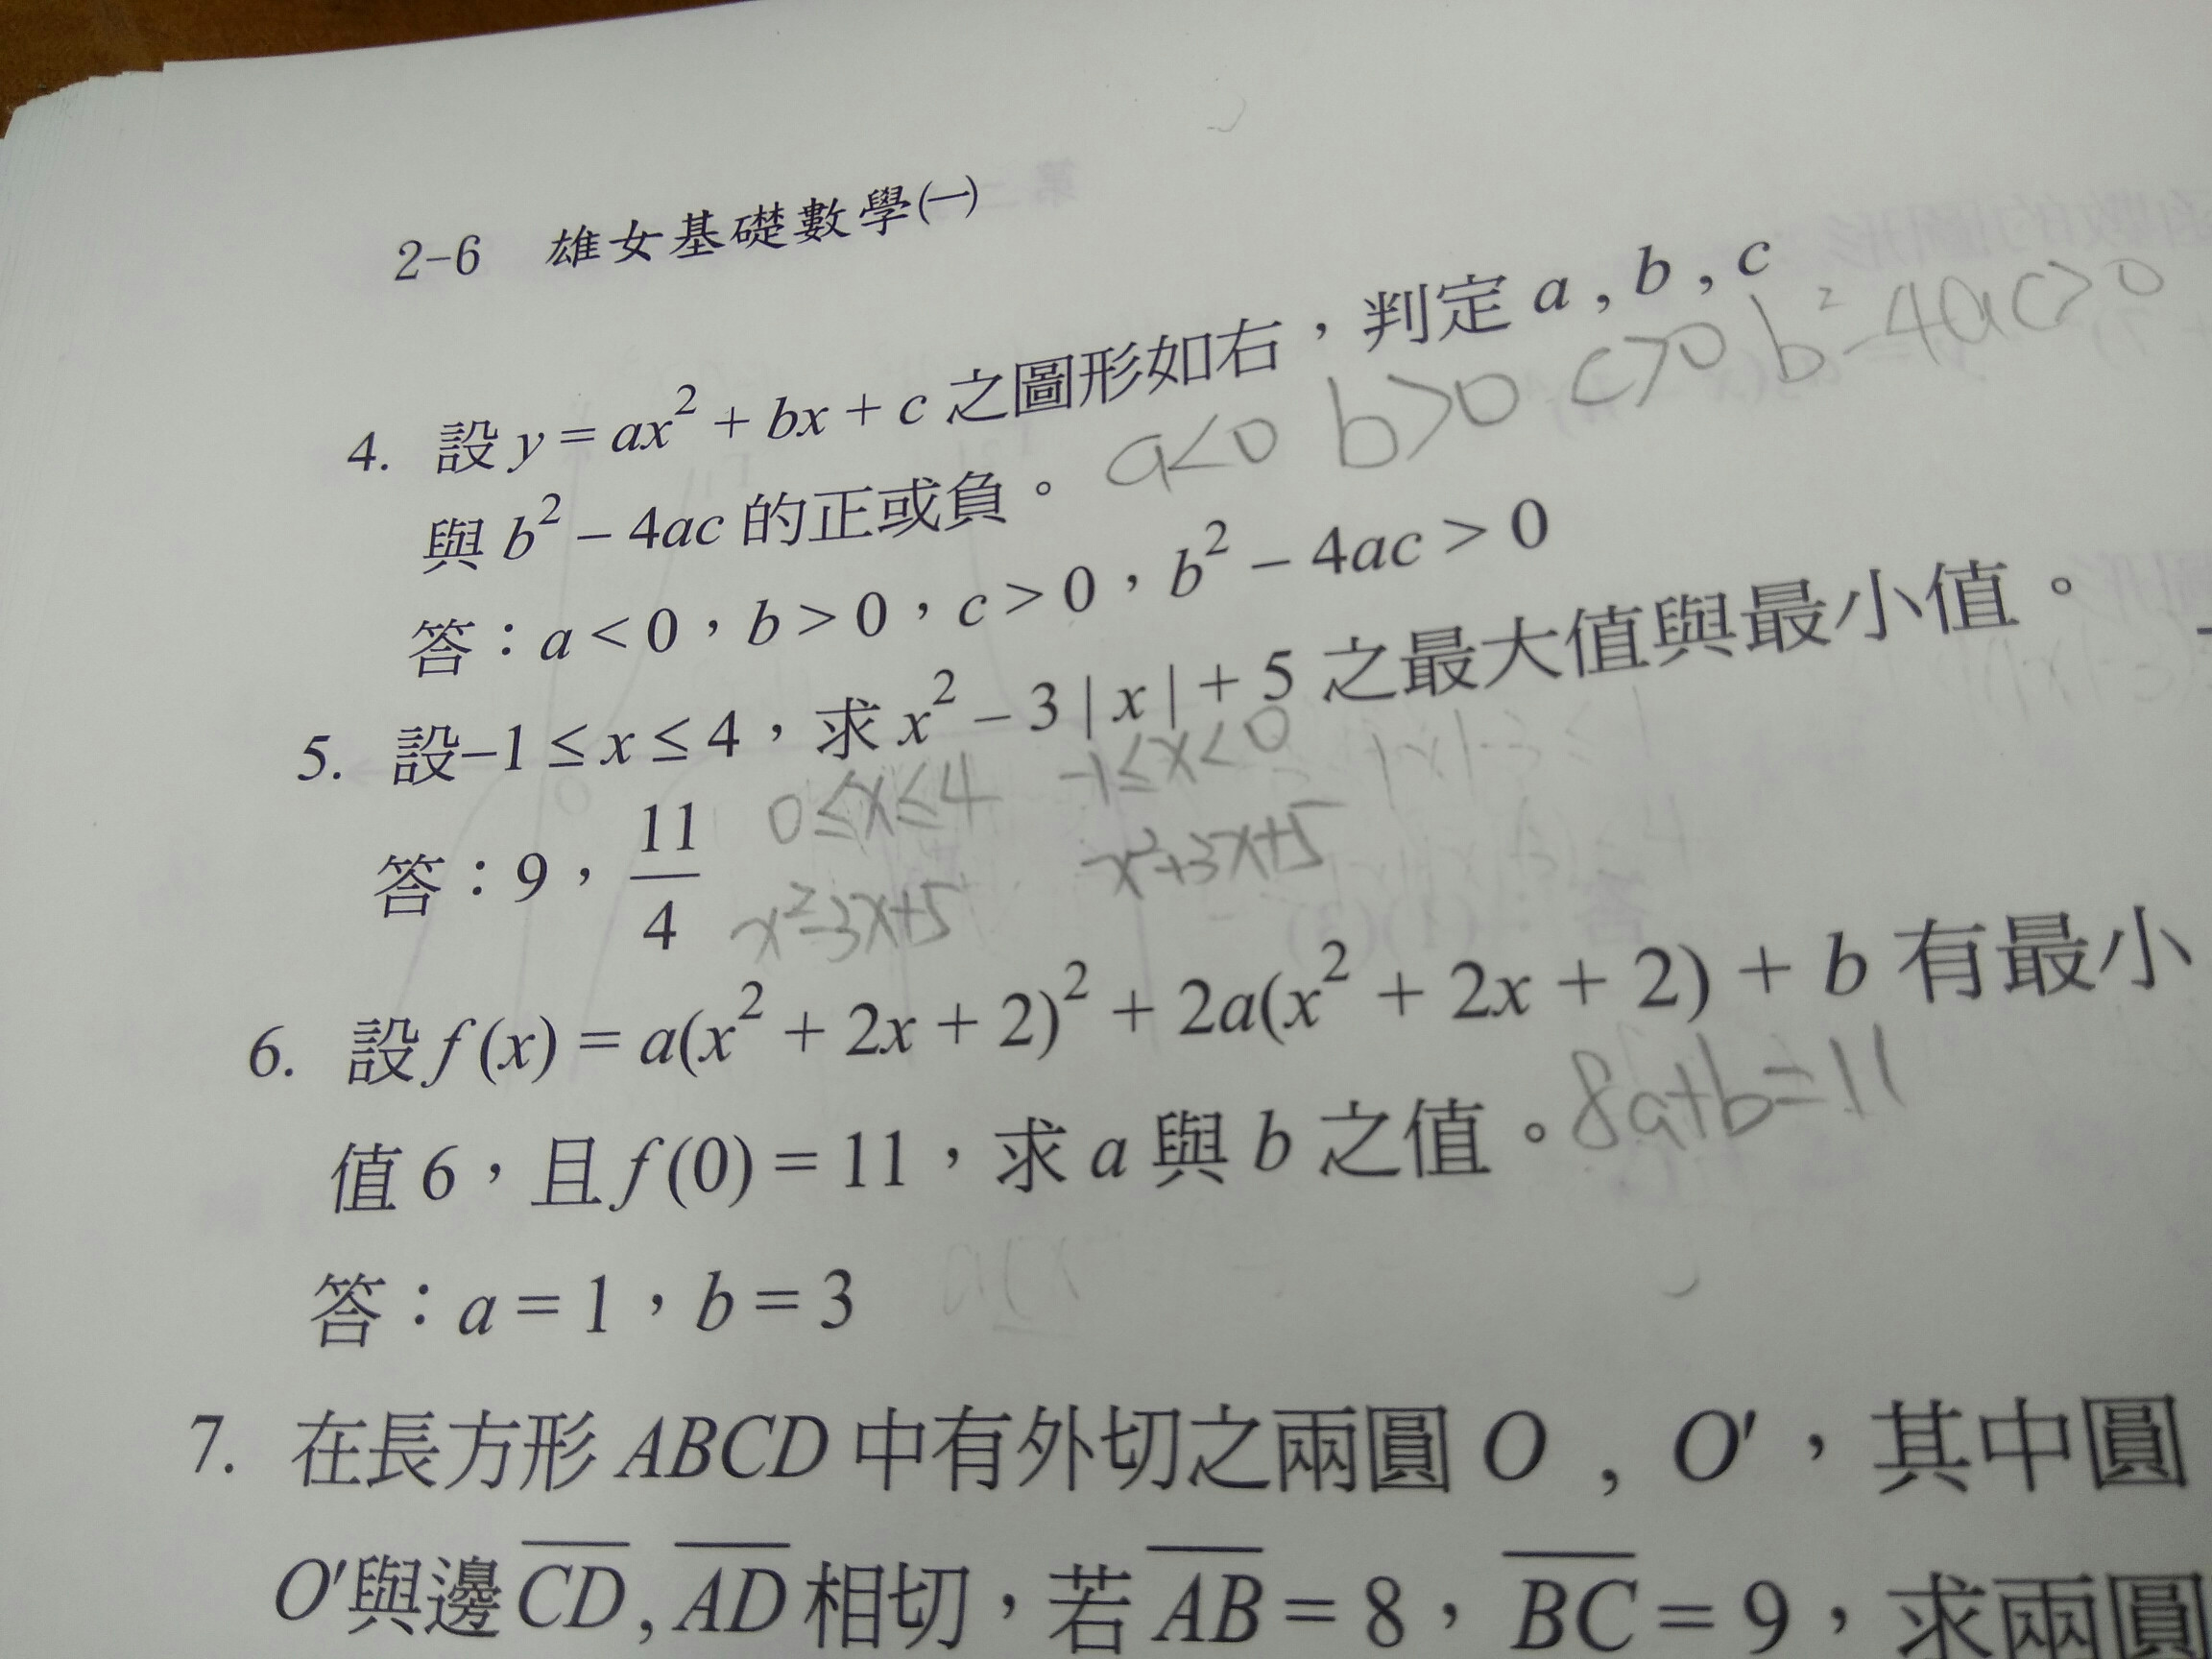 2-6 雄女基礎數學(一)
4. 設 y = ax² + bx + c 之圖形如右，判定 a , b , c
與 b² − 4ac 的正或負。 a<0 b>0 c>0 b²-4ac>0
答：a < 0，b > 0，c > 0，b² − 4ac > 0
5. 設−1 ≤ x ≤ 4，求 x² − 3 | x | + 5 之最大值與最小值。
0≤x≤4 -1≤x<0
答：9，11/4
x²-3x+5 x²+3x+5
6. 設 f (x) = a(x² + 2x + 2)² + 2a(x² + 2x + 2) + b 有最小
值 6，且 f (0) = 11，求 a 與 b 之值。 8a+b=11
答：a = 1，b = 3
7. 在長方形 ABCD 中有外切之兩圓 O , O′，其中圓
O′與邊 C̅D̅ , A̅D̅ 相切，若 A̅B̅ = 8，B̅C̅ = 9，求兩圓